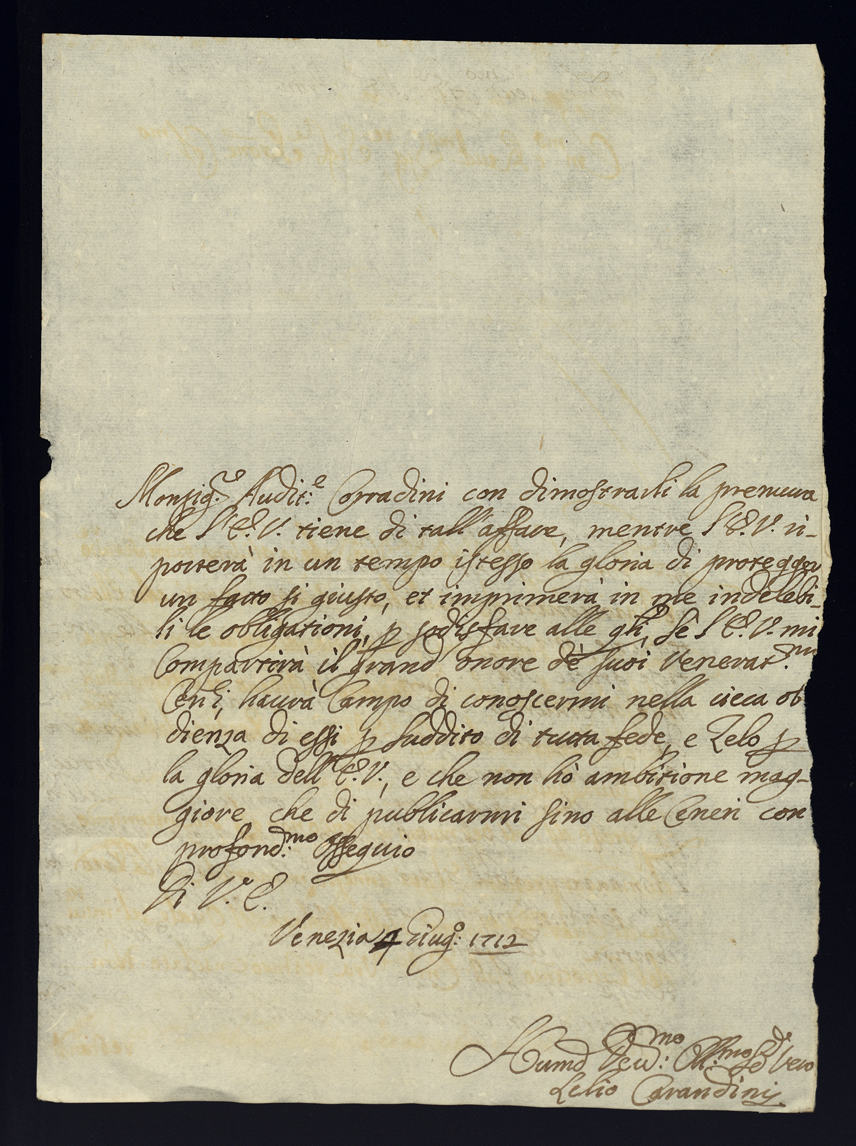 Monsig.r Audit.e Corradini con dimostrarli la premura
che l'E. V. tiene di tall'affare, mentre l'E. V. ri-
porterà in un tempo istesso la gloria di protegger
un fatto si giusto, et imprimerà in me indelebi-
li le obligationi, p sodisfare alle Se l'E. V. mi
Compartirà il grand'onore de suoi venerat.mi
haurà Campo di conoscermi nella cieca ob
dienza di essi p suddito di tutta fede, e Zelo p
la gloria dell'E. V., e che non hò ambitione mag-
giore, che di publicarmi sino alle Ceneri con
profond.mo Ossequio
Di V. E.
Venezia 4 Giug.o: 1712
Hum.mo Dev.: Obl.mo Se.de Vero
Lelio Carandini